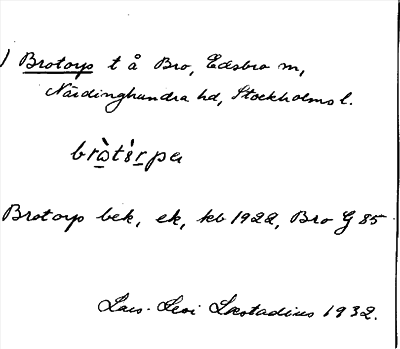 ) Brotorp t å Bro, Edsbro sn,
Närdinghundra hd, Stockholms l.
bròtórpa
Brotorp bek, ek, kb 1922, Bro G 85
Lars-Levi Læstadius 1932.